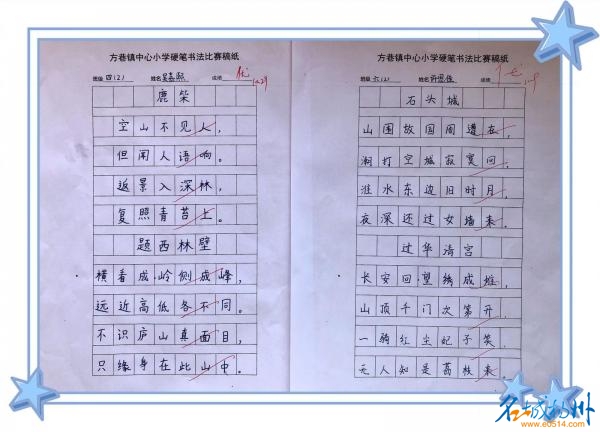 方巷镇中心小学硬笔书法比赛稿纸
班级 四(2) 姓名 成绩 优
鹿柴
空山不见人,
但闻人语响。
返景入深林,
复照青苔上。
题西林壁
横看成岭侧成峰,
远近高低各不同。
不识庐山真面目,
只缘身在此山中。
方巷镇中心小学硬笔书法比赛稿纸
班级 六(2) 姓名 成绩 优
石头城
山围故国周遭在,
潮打空城寂寞回。
淮水东边旧时月,
夜深还过女墙来。
过华清宫
长安回望绣成堆,
山顶千门次第开,
一骑红尘妃子笑,
无人知是荔枝来。
名城扬州
www.e0514.com